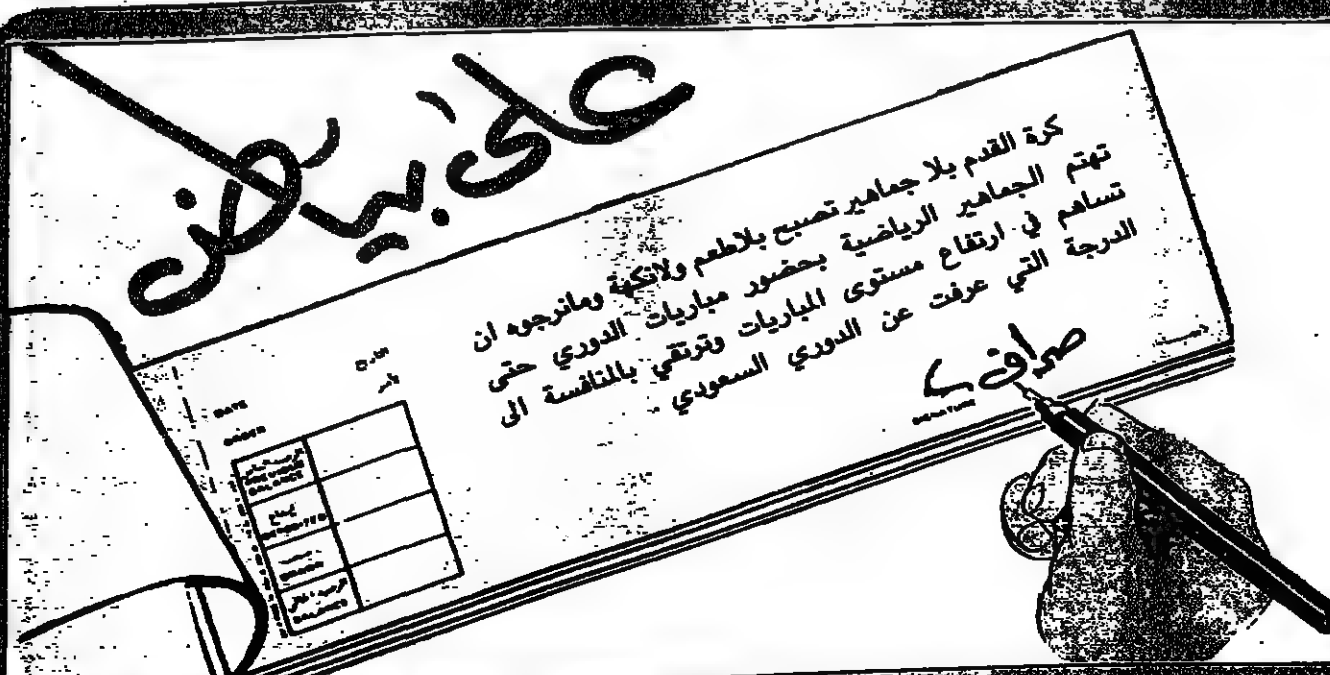 على بياض
كرة القدم بلا جماهير تصبح بلاطعم ولانكهة ومانرجوه ان
تهتم الجماهير الرياضية بحضور مباريات الدوري حتى
تساهم في ارتفاع مستوى المباريات وترتقي بالمنافسة الى
الدرجة التي عرفت عن الدوري السعودي .
صراف
SIGNATURE
التاريخ
DATE
لأمر
ORDER
BALANCE
إيداع
BALANCE